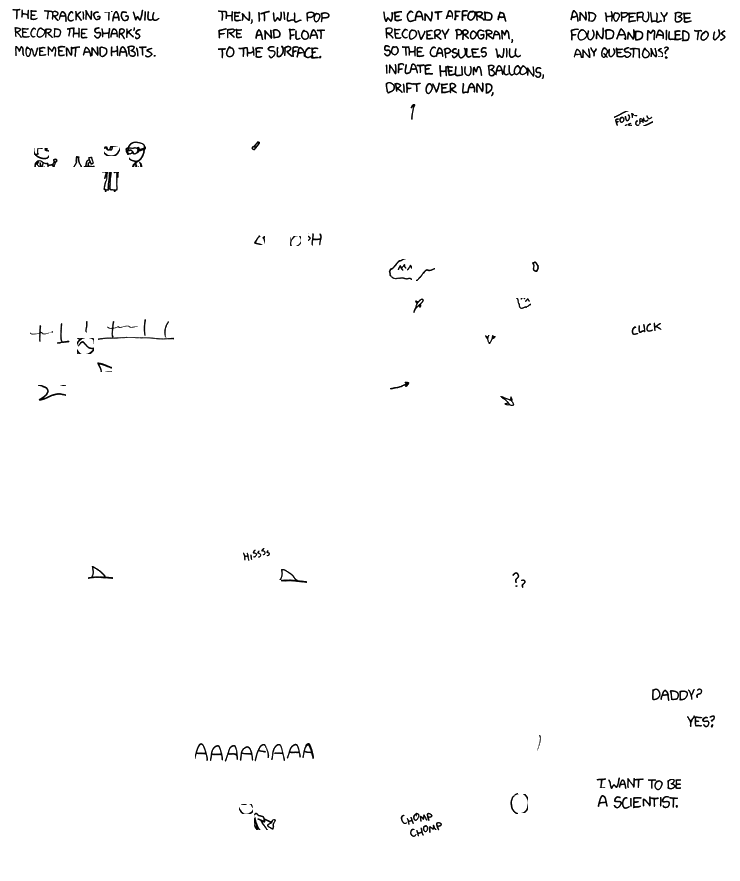 THE TRACKING TAG WILL
RECORD THE SHARK'S
MOVEMENT AND HABITS.
THEN, IT WILL POP
FRE AND FLOAT
TO THE SURFACE.
WE CAN'T AFFORD A
RECOVERY PROGRAM,
SO THE CAPSULES WILL
INFLATE HELIUM BALLOONS,
DRIFT OVER LAND,
AND HOPEFULLY BE
FOUND AND MAILED TO US
ANY QUESTIONS?
CLICK
HISSSS
??
AAAAAAAA
CHOMP
CHOMP
DADDY?
YES?
I WANT TO BE
A SCIENTIST.